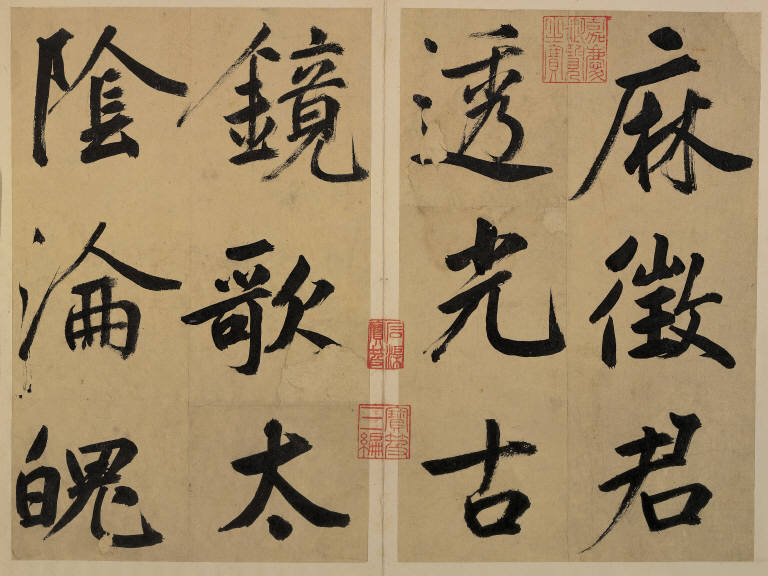 麻徵君
透光古
鏡歌太
陰淪魄
嘉慶御覽之寶
石渠寶笈
寶笈三編